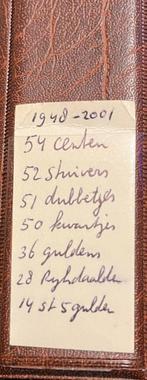 1948-2001
54 centen
52 stuivers
51 dubbeltjes
50 kwartjes
36 guldens
28 Ryksdaalder
14 st 5 gulden